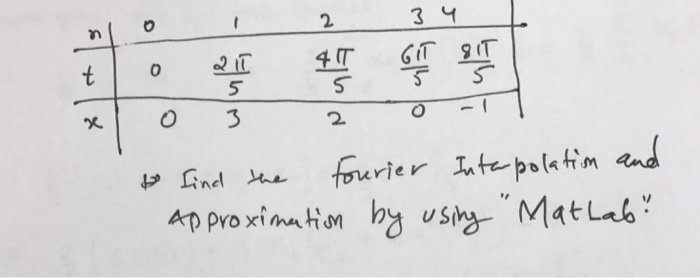 n 0 1 2 3 4
t 0 2π/5 4π/5 6π/5 8π/5
x 0 3 2 0 -1
find the fourier Interpolation and
Approximation by using "MatLab"